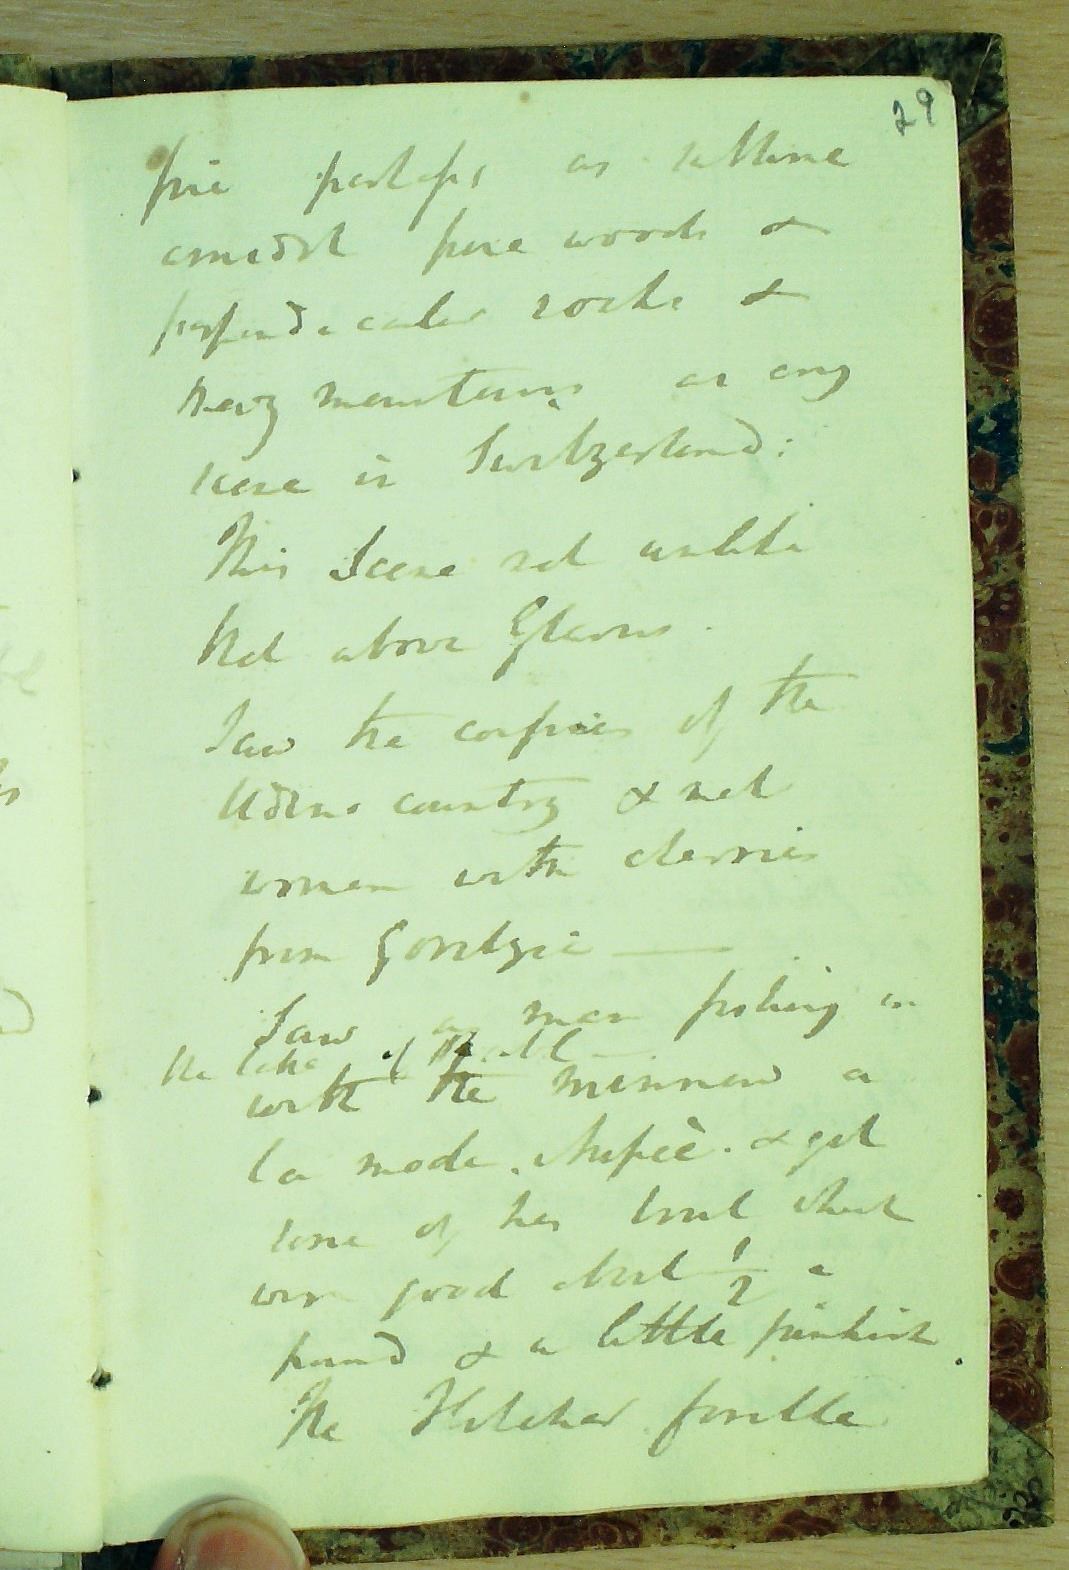 29
fine perhaps as sublime
amidst pine woods &
perpendicular rocks &
mountains as any
scene in Switzerland:
This Scene not unlike
that above Glarus.
Saw the confines of the
Udine country & met
women with cherries
from Goritzia —
Saw a man fishing in
the lake of
with the minnow a
la mode & got
some of his trout which
were good about 1/2 a
pound & a little pinkish.
The